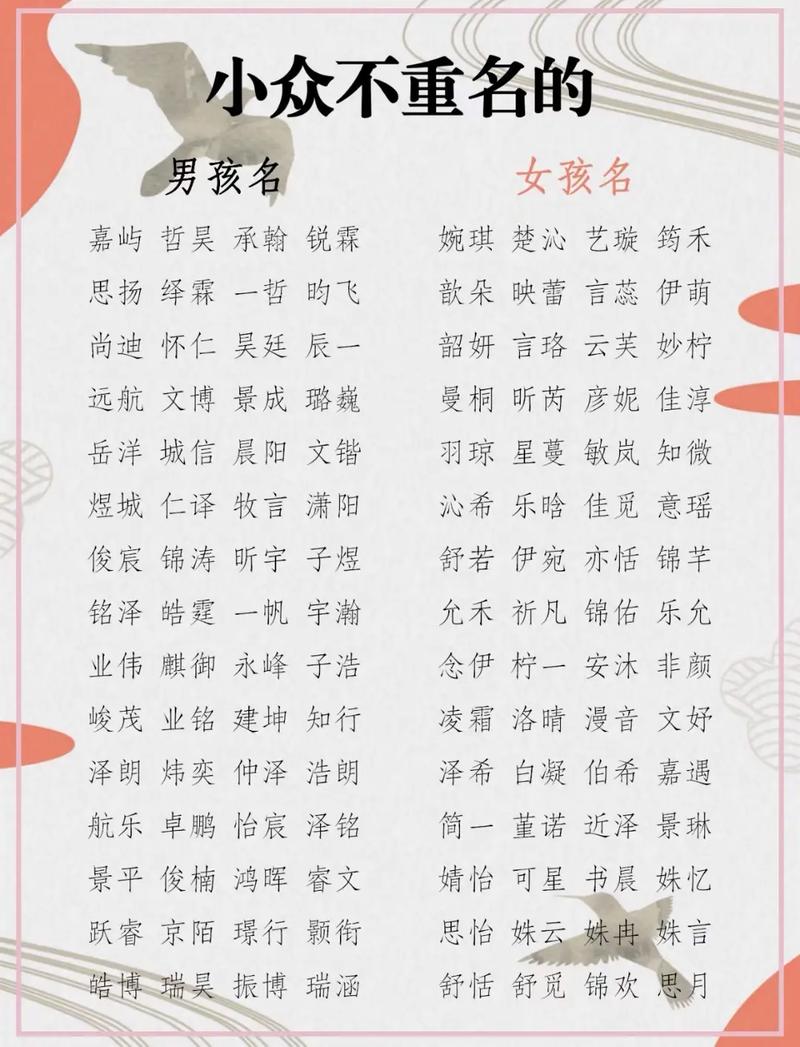 小众不重名的
男孩名
嘉屿 哲昊 承翰 锐霖
思扬 绎霖 一哲 昀飞
尚迪 怀仁 昊廷 辰一
远航 文博 景成 璐巍
岳洋 城信 晨阳 文锴
煜城 仁译 牧言 潇阳
俊宸 锦涛 昕宇 子煜
铭泽 皓霆 一帆 宇瀚
业伟 麒御 永峰 子浩
峻茂 业铭 建坤 知行
泽朗 炜奕 仲泽 浩朗
航乐 卓鹏 怡宸 泽铭
景平 俊楠 鸿晖 睿文
跃睿 京陌 璟行 颢衔
皓博 瑞昊 振博 瑞涵
女孩名
婉琪 楚沁 艺璇 筠禾
歆朵 映蕾 言蕊 伊萌
韶妍 言珞 云芙 妙柠
曼桐 昕芮 彦妮 佳淳
羽琼 星蔓 敏岚 知微
沁希 乐晗 佳觅 意瑶
舒若 伊宛 亦恬 锦芊
允禾 祈凡 锦佑 乐允
念伊 柠一 安沐 非颜
凌霜 洛晴 漫音 文妤
泽希 白凝 伯希 嘉遇
简一 堇诺 近泽 景琳
婧怡 可星 书晨 姝忆
思怡 姝云 姝冉 姝言
舒恬 舒觅 锦欢 思月